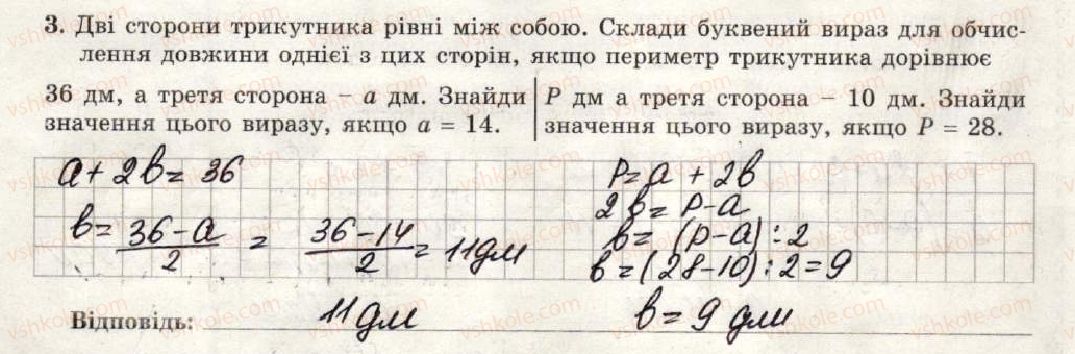 3. Дві сторони трикутника рівні між собою. Склади буквений вираз для обчис-
лення довжини однієї з цих сторін, якщо периметр трикутника дорівнює
36 дм, а третя сторона – a дм. Знайди
значення цього виразу, якщо a = 14.
P дм а третя сторона – 10 дм. Знайди
значення цього виразу, якщо P = 28.
a + 2b = 36
b = (36 - a)/2 = (36 - 14)/2 = 11 дм
P = a + 2b
2b = P - a
b = (p - a) : 2
b = (28 - 10) : 2 = 9
Відповідь: 11 дм
b = 9 дм
vshkole.com